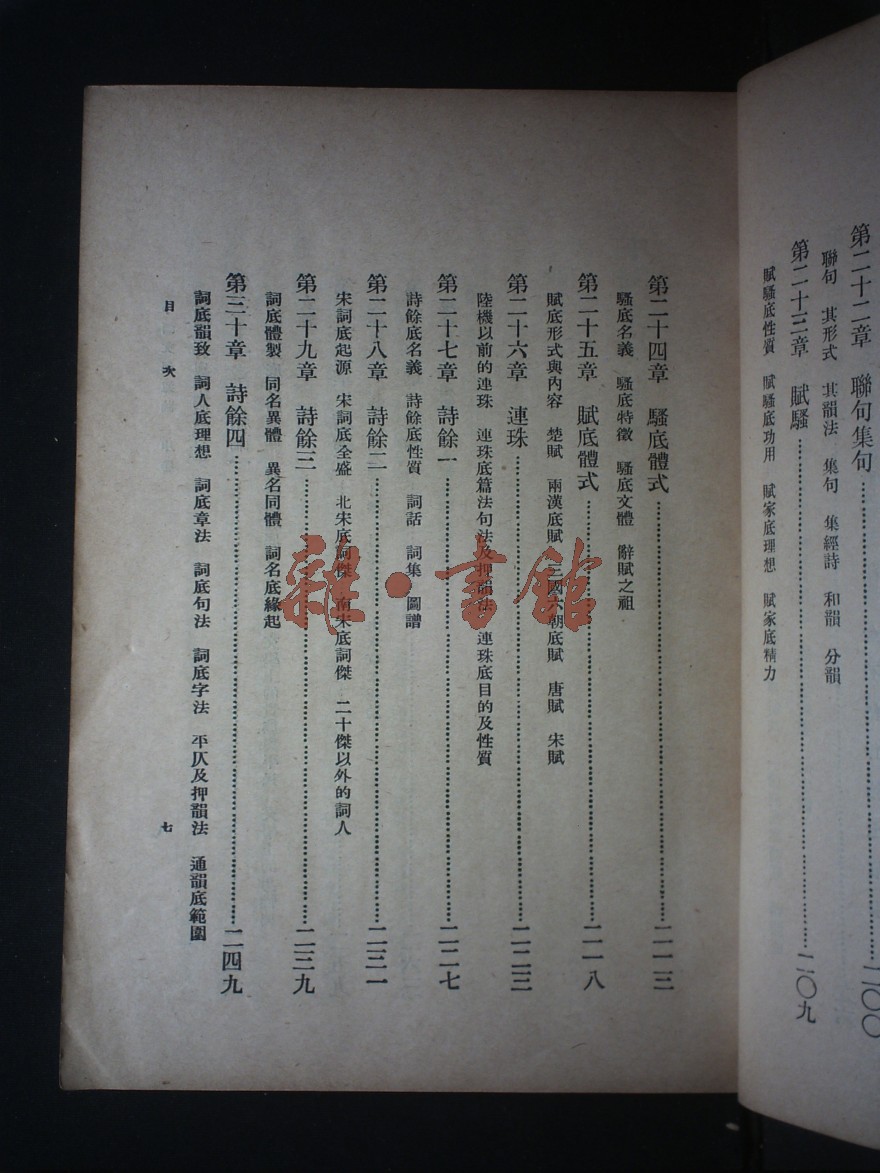 第二十二章　聯句集句……二〇〇
聯句　其形式　其韻法　集句　集經詩　和韻　分韻
第二十三章　賦騷……二〇九
賦騷底性質　賦騷底功用　賦家底理想　賦家底精力
第二十四章　騷底體式……二一三
騷底名義　騷底特徵　騷底文體　辭賦之祖
第二十五章　賦底體式……二一八
賦底形式與內容　楚賦　兩漢底賦　三國六朝底賦　唐賦　宋賦
第二十六章　連珠……二二三
陸機以前的連珠　連珠底篇法句法及押韻法　連珠底目的及性質
第二十七章　詩餘一……二二七
詩餘底名義　詩餘底性質　詞話　詞集　圖譜
第二十八章　詩餘二……二三一
宋詞底起源　宋詞底全盛　北宋底詞傑　南宋底詞傑　二十傑以外的詞人
第二十九章　詩餘三……二三九
詞底體製　同名異體　異名同體　詞名底緣起
第三十章　詩餘四……二四九
詞底韻致　詞人底理想　詞底章法　詞底句法　詞底字法　平仄及押韻法　通韻底範圍
目次　七
雜·書館